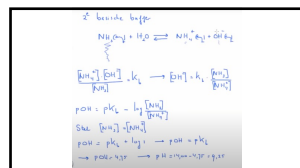 2° basische buffer
NH₃(aq) + H₂O ⇌ NH₄⁺(aq) + OH⁻(aq)
[NH₄⁺] [OH⁻] / [NH₃] = k_b → [OH⁻] = k_b · [NH₃] / [NH₄⁺]
pOH = pk_b − log [NH₃] / [NH₄⁺]
Stel [NH₃] = [NH₄⁺]
pOH = pk_b − log 1 → pOH = pk_b
→ pOH = 4,75 → pH = 14,00 − 4,75 = 9,25